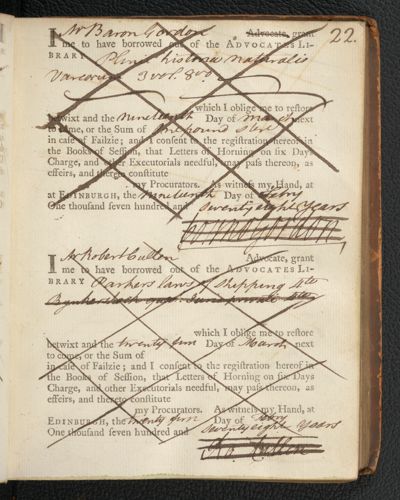 22.
I Mr Baron Gordon Advocate, grant
me to have borrowed out of the ADVOCATES LI-
BRARY Plinii historia naturalis
Variorum 3 vol. 8vo
which I oblige me to restore
betwixt and the nineteenth Day of March next
to come, or the Sum of one pound Sterl
in case of Failzie; and I consent to the registration hereof in
the Books of Session, that Letters of Horning on six Days
Charge, and other Executorials needful, may pass thereon, as
effeirs, and thereto constitute
my Procurators. As witness my Hand, at
at EDINBURGH, the nineteenth Day of Febry
One thousand seven hundred and Seventy eight Years
I Mr Robert Cullen Advocate, grant
me to have borrowed out of the ADVOCATES LI-
BRARY Parkers laws of Shipping 4to
which I oblige me to restore
betwixt and the twenty first Day of March next
to come, or the Sum of
in case of Failzie; and I consent to the registration hereof in
the Books of Session, that Letters of Horning on six Days
Charge, and other Executorials needful, may pass thereon, as
effeirs, and thereto constitute
my Procurators. As witness my Hand, at
EDINBURGH, the twenty first Day of Febry
One thousand seven hundred and Seventy eight Years
Ro. Cullen